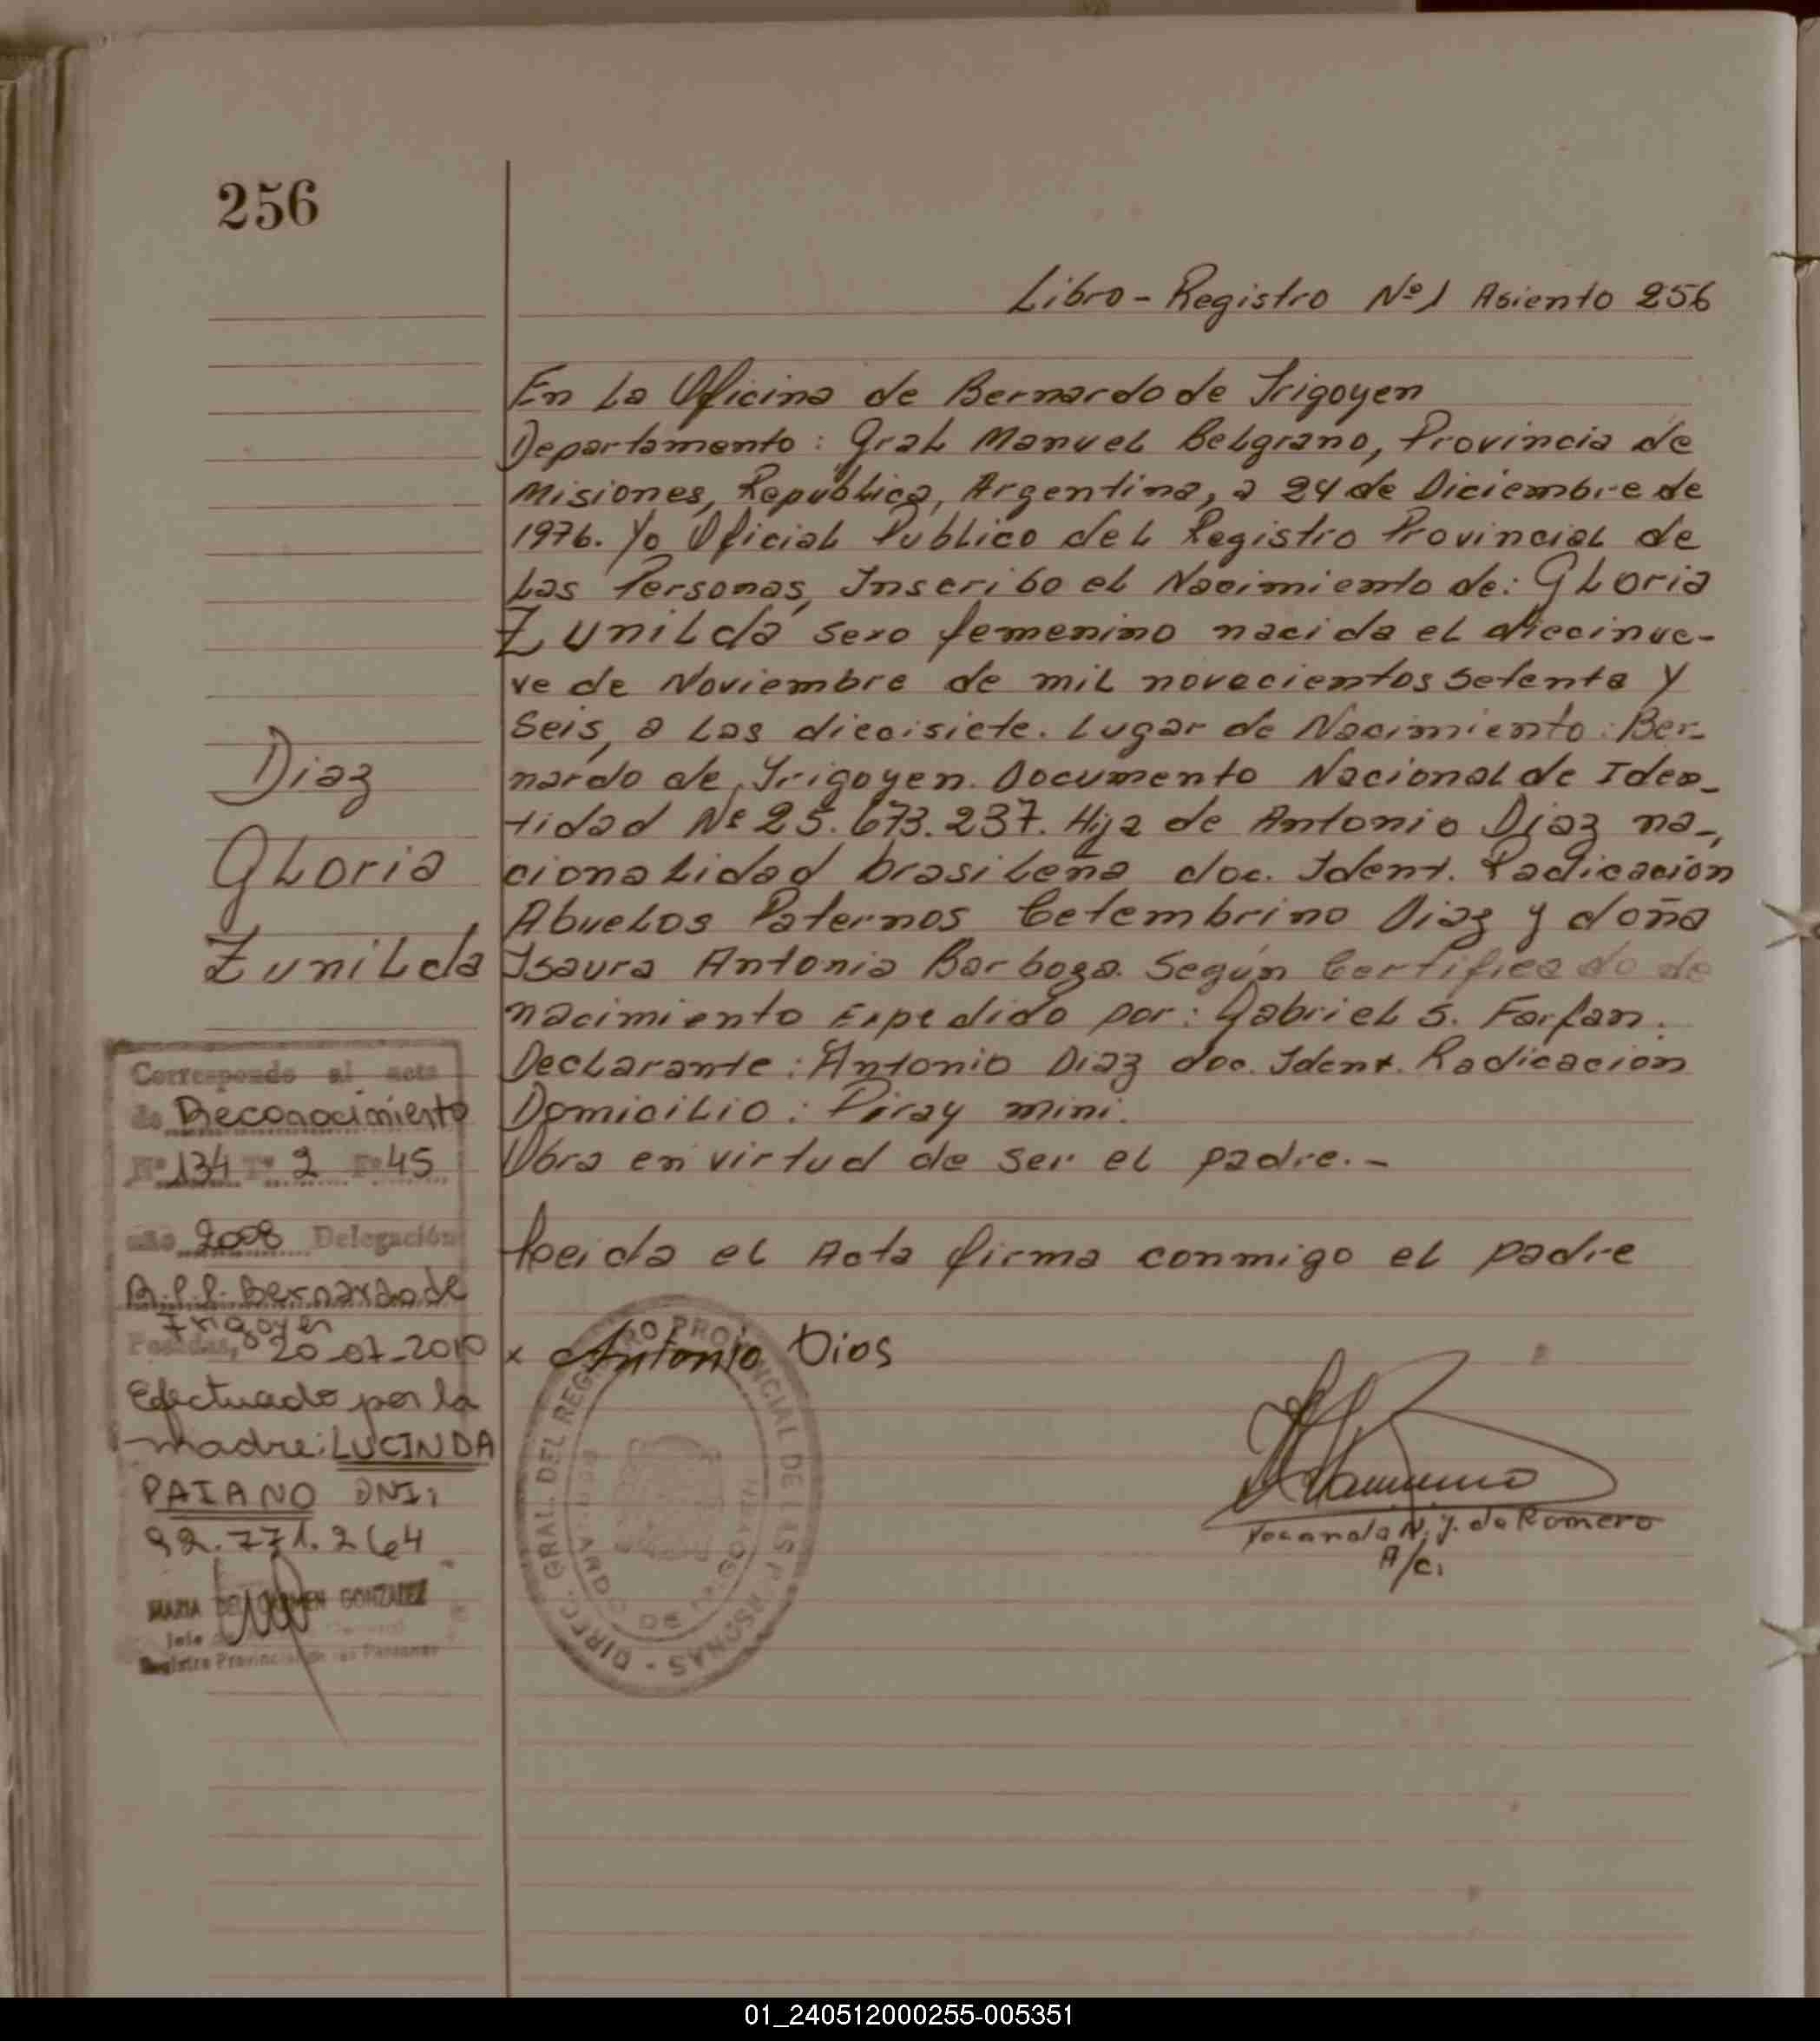 256
Libro - Registro Nº1 Asiento 256
En La Oficina de Bernardo de Irigoyen
Departamento: Gral Manuel Belgrano, Provincia de
Misiones, República, Argentina, a 24 de Diciembre de
1976. Yo Oficial Publico del Registro Provincial de
Las Personas, Inscribo el Nacimiento de: Gloria
Zunilda sexo femenino nacida el diecinue-
ve de Noviembre de mil novecientos setenta y
Seis, a las diecisiete. Lugar de Nacimiento: Ber-
nardo de Irigoyen. Documento Nacional de Iden-
tidad Nº 25.673.237. Hija de Antonio Diaz na-
cionalidad brasileña doc. Ident. Radicación
Abuelos Paternos Cetembrino Diaz y doña
Isaura Antonia Barboza. Según Certificado de
nacimiento Expedido por: Gabriel S. Farfan.
Declarante: Antonio Diaz doc. Ident. Radicación
Domicilio: Piray mini.
Obra en virtud de ser el padre.-
Leida el Acta firma conmigo el padre
x Antonio Dios
de Romero
A/C.
DIREC. GRAL. DEL REGISTRO PROVINCIAL DE LAS PERSONAS
Diaz
Gloria
Zunilda
Corresponde al acta
de Reconocimiento
Nº 134 Tº 2 Fº 45
año 2008 Delegación
Bernardo de
Irigoyen
Posadas, 20-07-2010
Efectuado por la
madre: LUCINDA
PAIANO DNI:
92.771.264
MARIA DEL CARMEN GONZALEZ
Jefe
Registro Provincial de las Personas
01_240512000255-005351